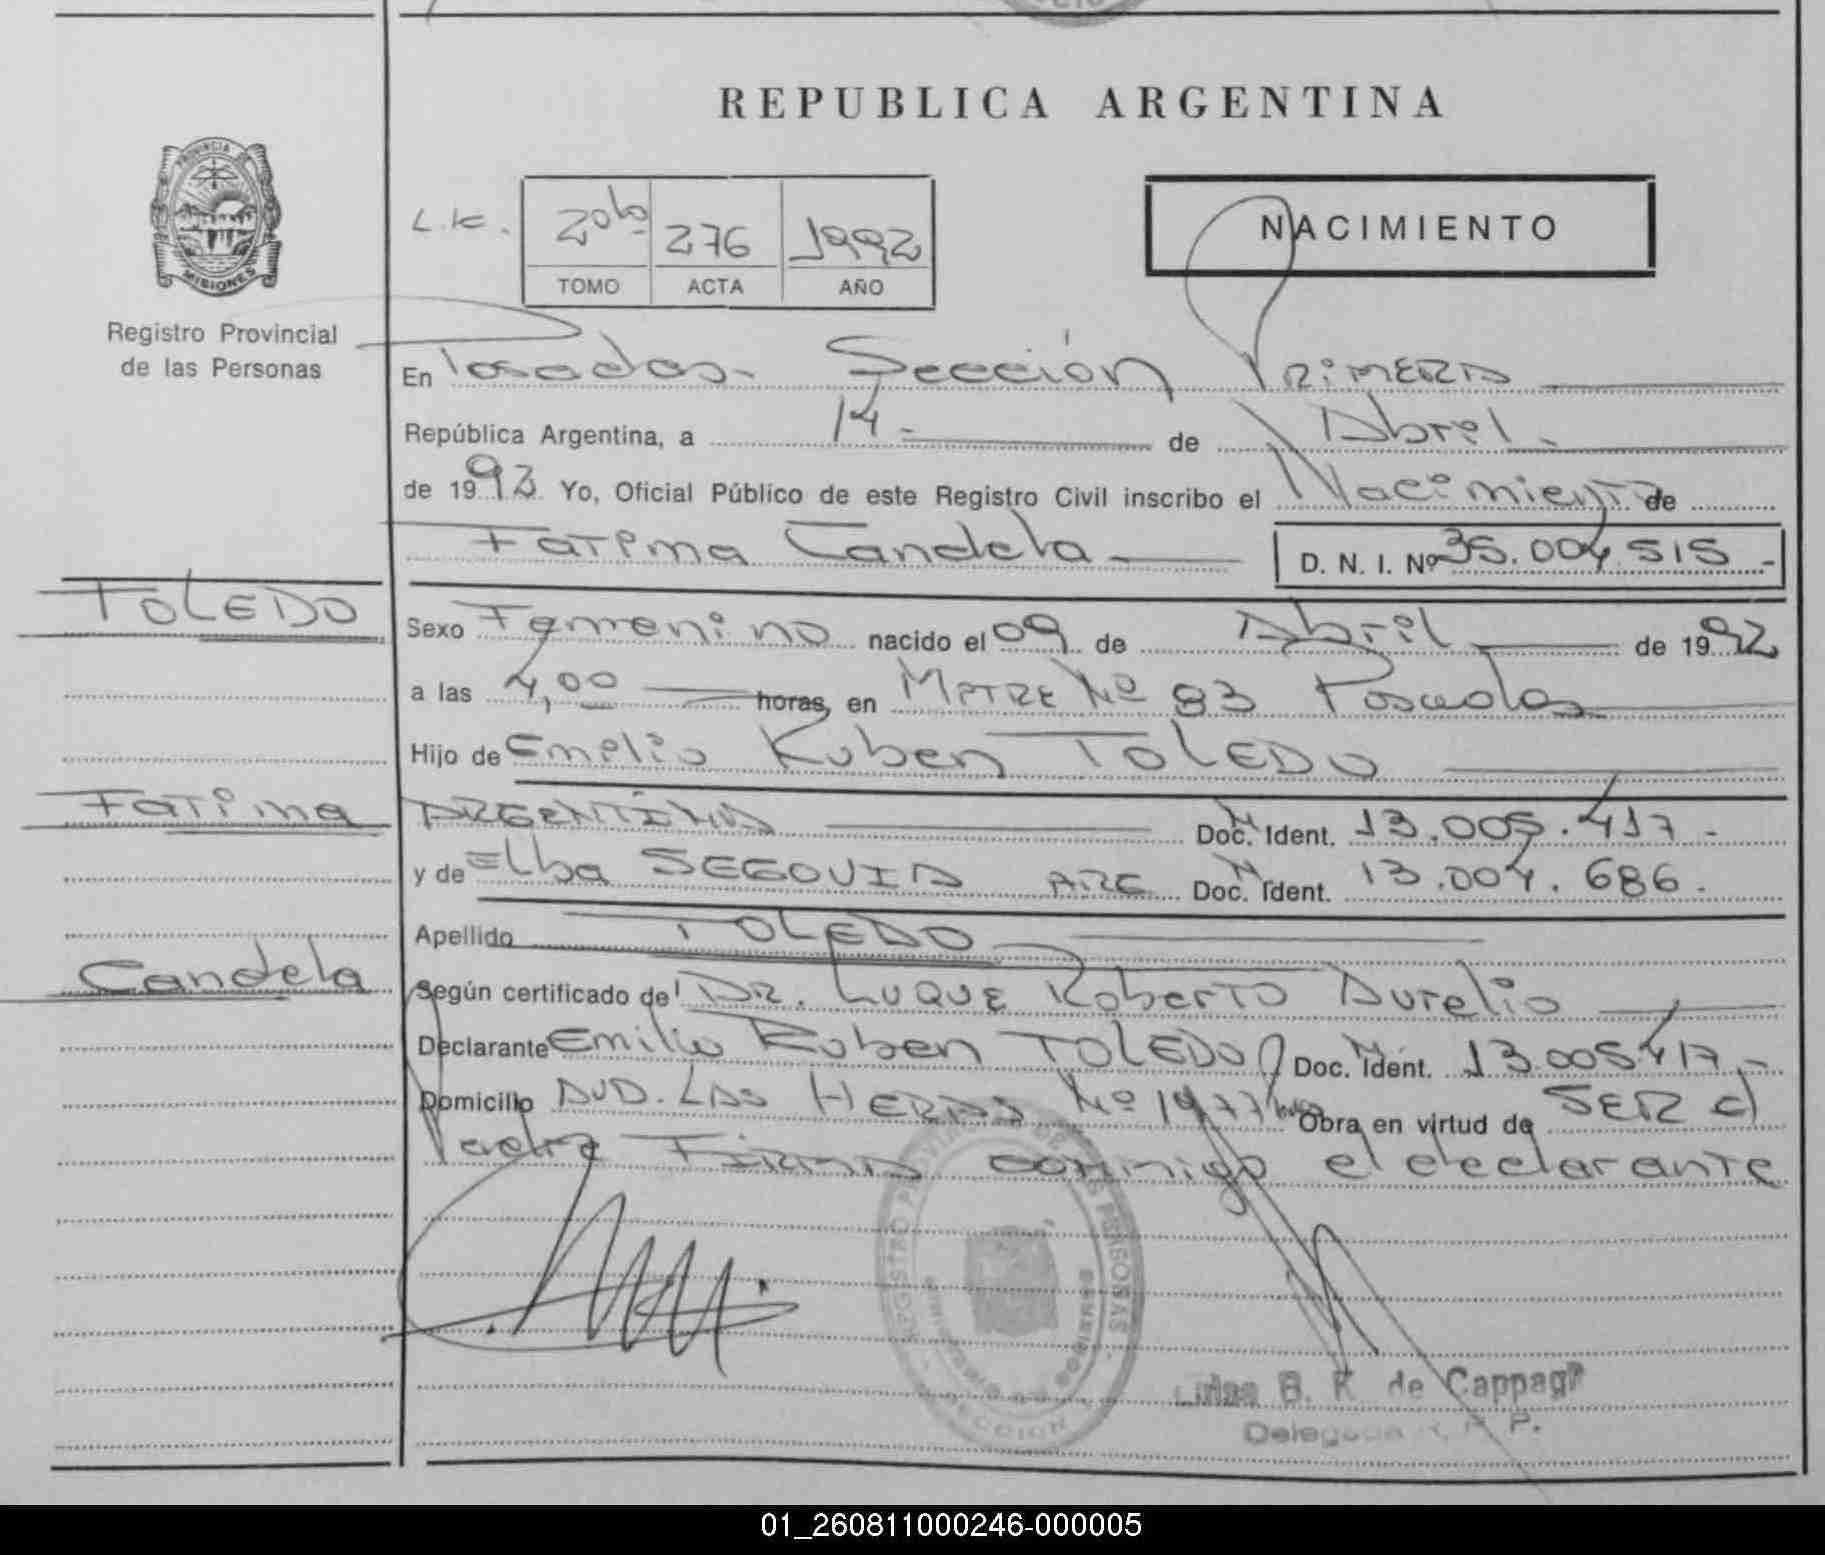 REPUBLICA ARGENTINA
PROVINCIA DE
MISIONES
Registro Provincial
de las Personas
L.K. 2º bº 276 1992
TOMO ACTA AÑO
NACIMIENTO
En Posadas - Sección Primera
República Argentina, a 14 - de Abril -
de 1992 Yo, Oficial Público de este Registro Civil inscribo el Nacimiento de
Fatima Candela D. N. I. Nº 36.004.515 -
TOLEDO
Sexo Femenino nacido el 09 de Abril de 1992
a las 4,00 horas, en MATRE Nº 93 Posadas
Hijo de Emilio Ruben TOLEDO
Fatima
ARGENTINA Doc. Ident. 13.005.417 -
y de Elba SEGOVIA ARG. Doc. Ident. 13.004.686.
Apellido TOLEDO
Candela
Según certificado de DR. LUQUE Roberto Aurelio
Declarante Emilio Ruben TOLEDO Doc. Ident. 13.005.417 -
Domicilio AVD. LAS HERAS Nº 1977 Obra en virtud de SER el
Padre FIRMA conmigo el declarante
REGISTRO PROVINCIAL DE LAS PERSONAS
SECCION
B. R. de Cappagr
Delegada R. P. P.
01_260811000246-000005